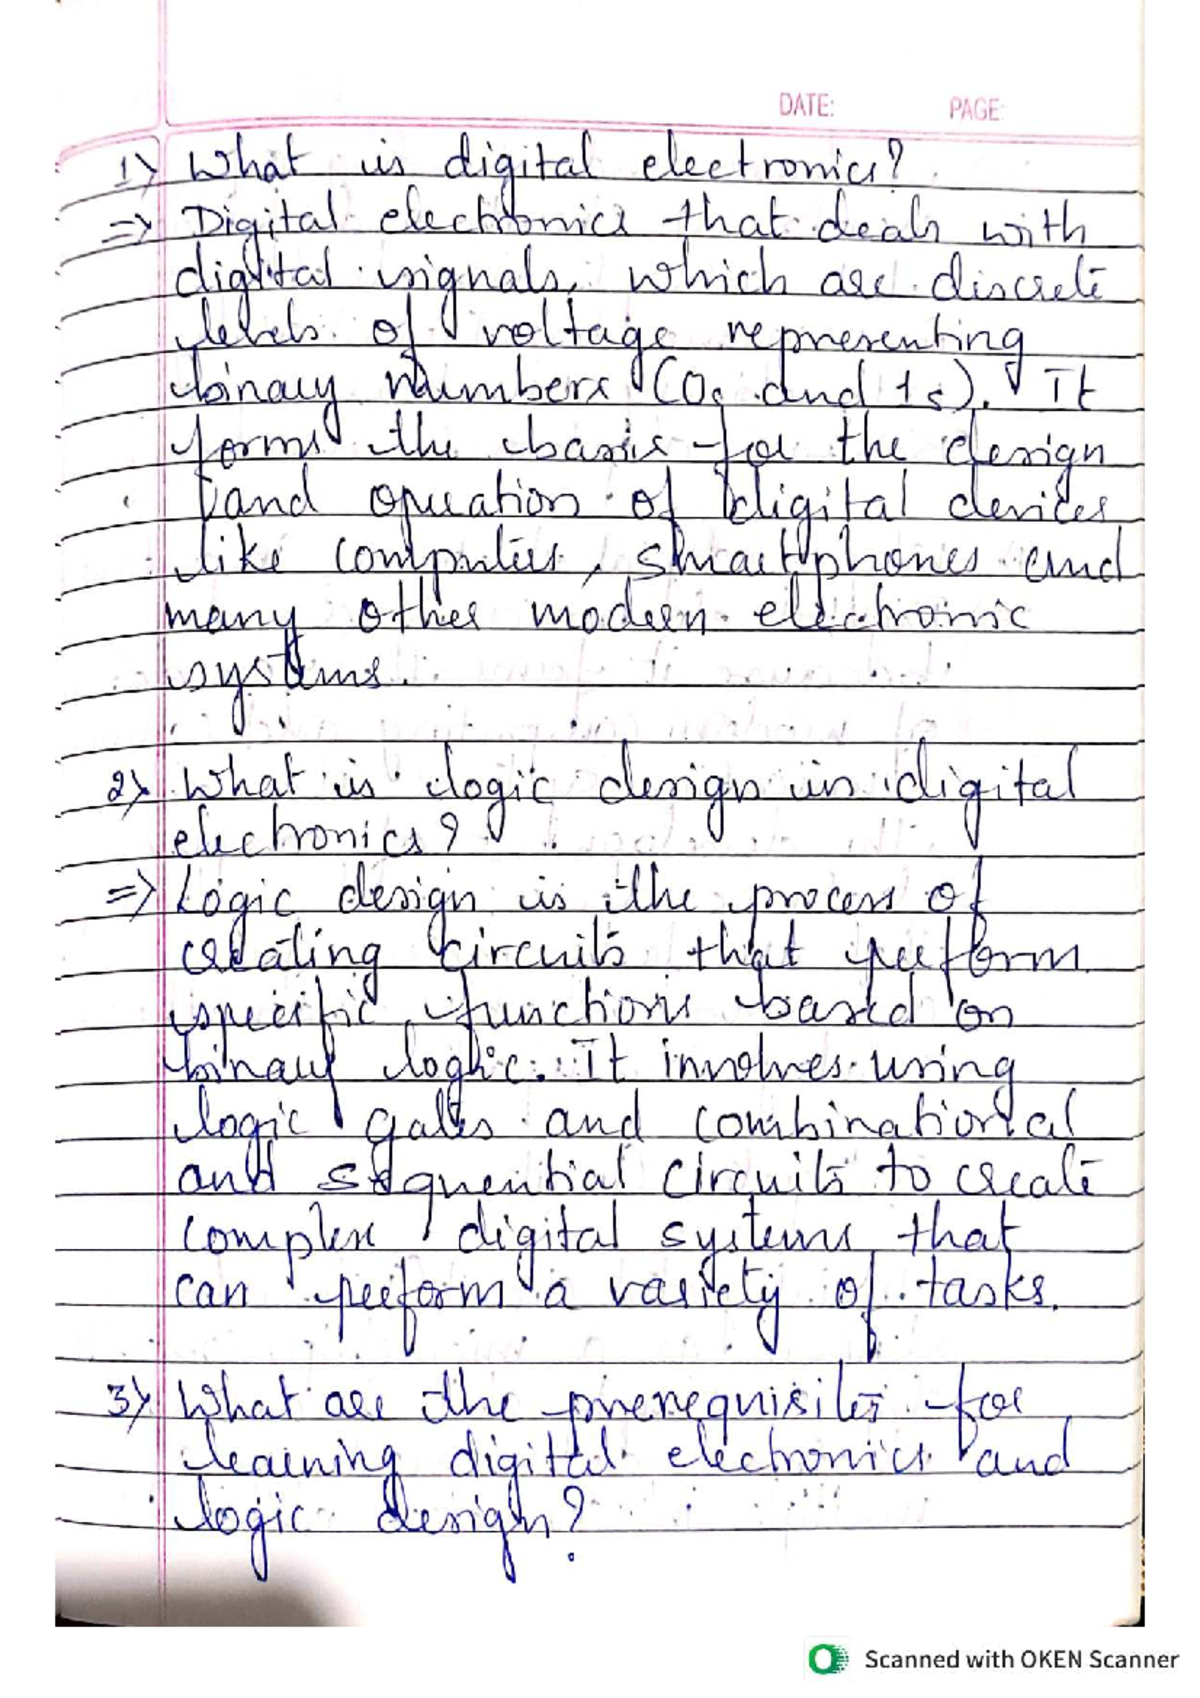 DATE: PAGE:
1) What is digital electronics?
=> Digital electronics that deals with
digital signals, which are discrete
levels of voltage representing
binary numbers (0s and 1s). It
forms the basis for the design
and operation of digital devices
like computers, smartphones and
many other modern electronic
systems.
2) What is logic design in digital
electronics?
=> Logic design is the process of
creating circuits that perform
specific functions based on
binary logic. It involves using
logic gates and combinational
and sequential circuits to create
complex digital systems that
can perform a variety of tasks.
3) What are the prerequisites for
learning digital electronics and
logic design?
Scanned with OKEN Scanner